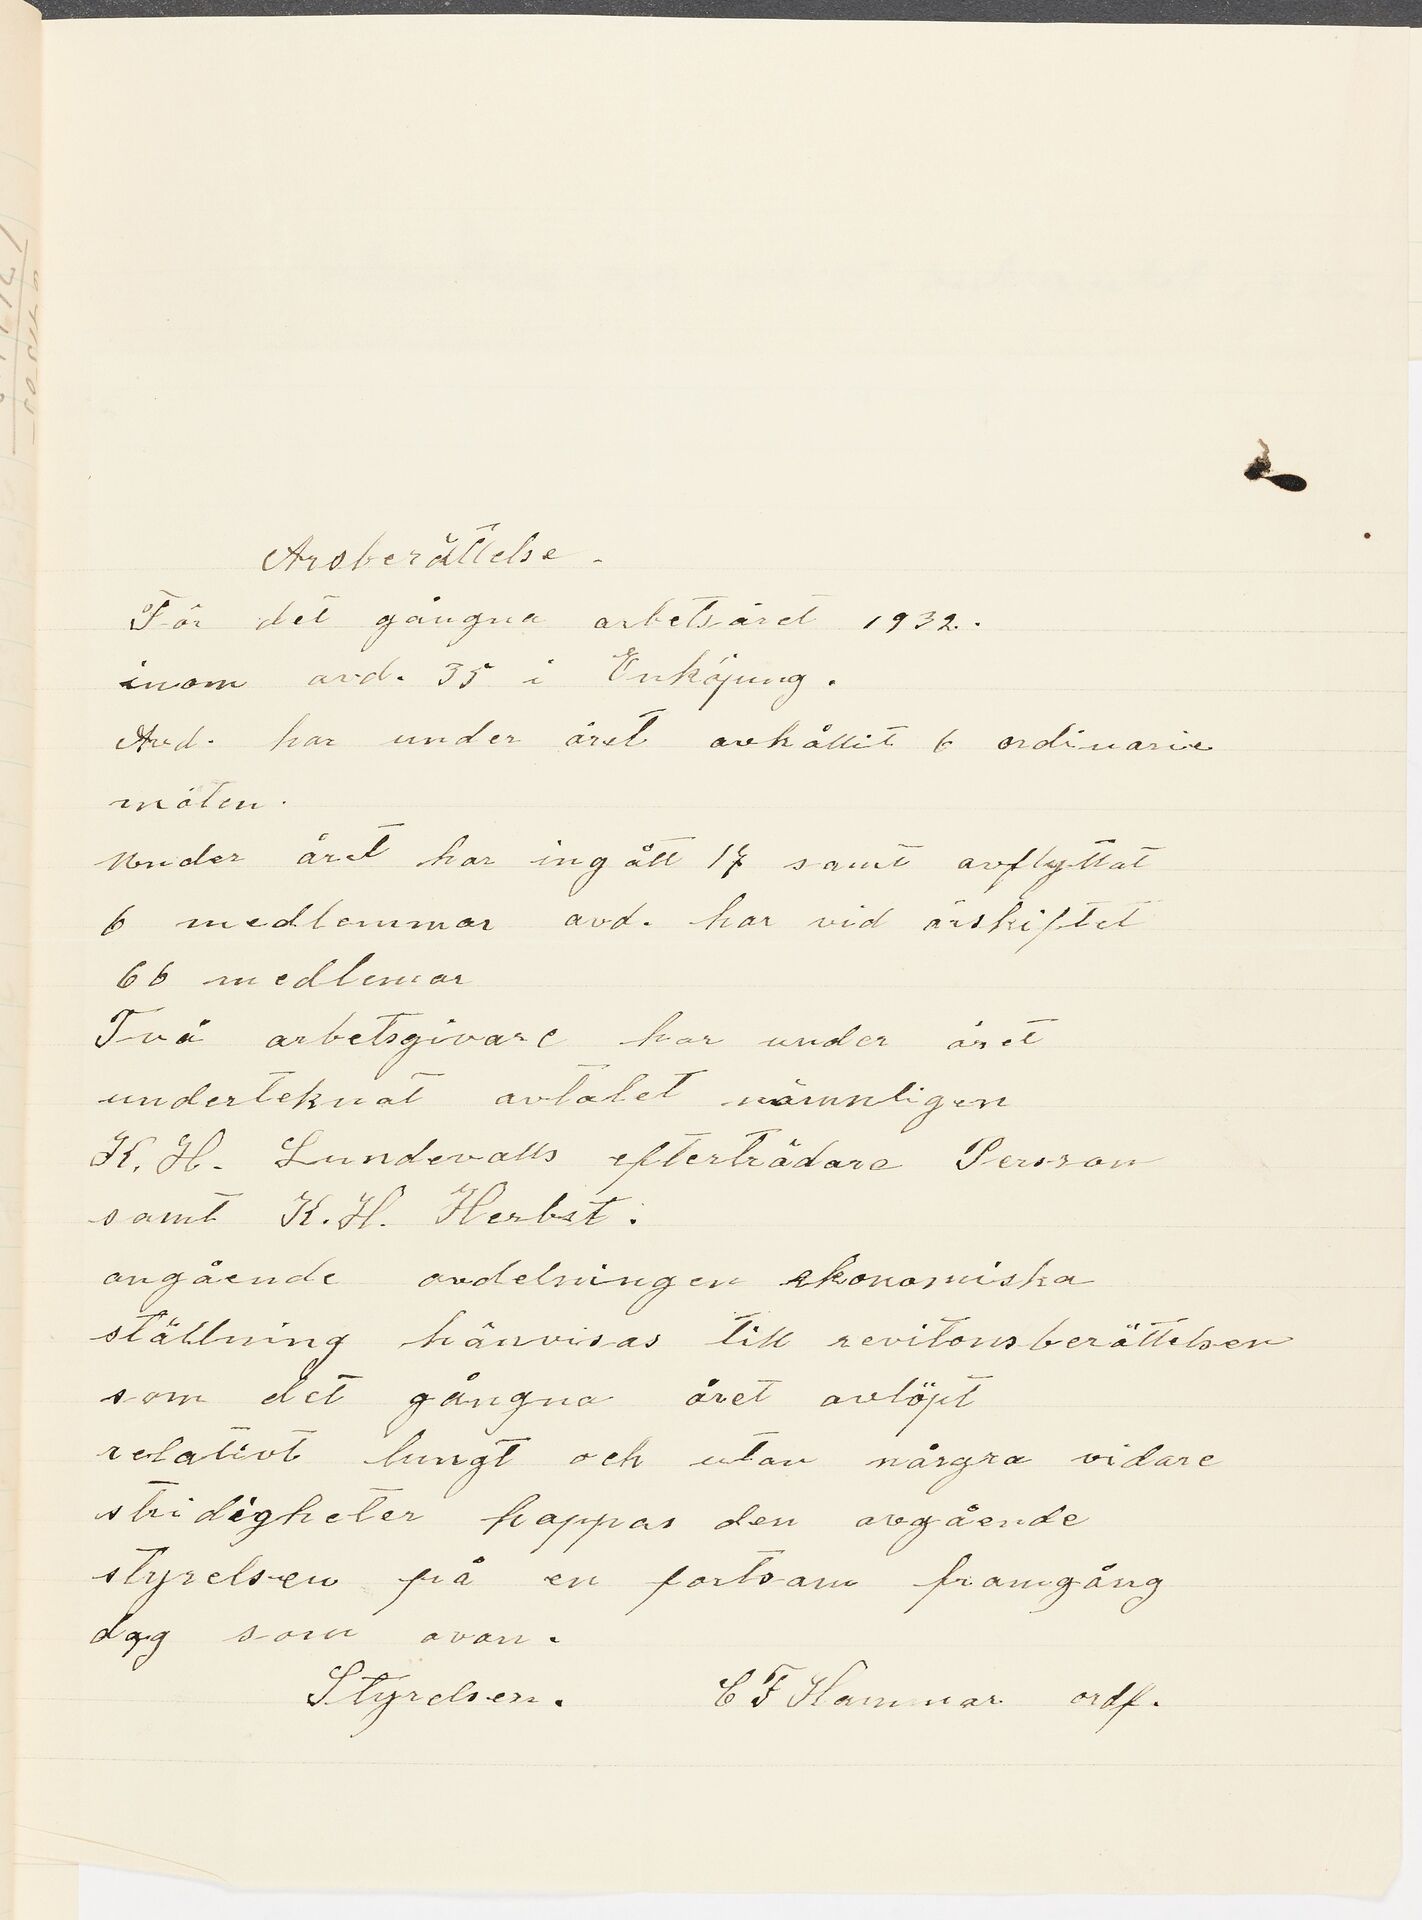 Arsberättelse.
För det gångna arbetsåret 1932.
inom avd. 35 i Enköping.
Avd. har under året avhållit 6 ordinarie
möten.
Under året har ingått 17 samt avflyttat
6 medlemmar avd. har vid årskiftet
66 medlemar
Två arbetsgivare har under året
underteknat avtalet nämnligen
K. H. Lundevalls efterträdare Persson
samt K. H. Herbst.
angående avdelningen ekonomiska
ställning hänvisas till revitonsberättelsen
som det gångna året avlöpt
relativt lungt och utan några vidare
stridigheter hoppas den avgående
styrelsen på en fortsam framgång
dag som ovan.
Styrelsen. C F Hammar ordf.